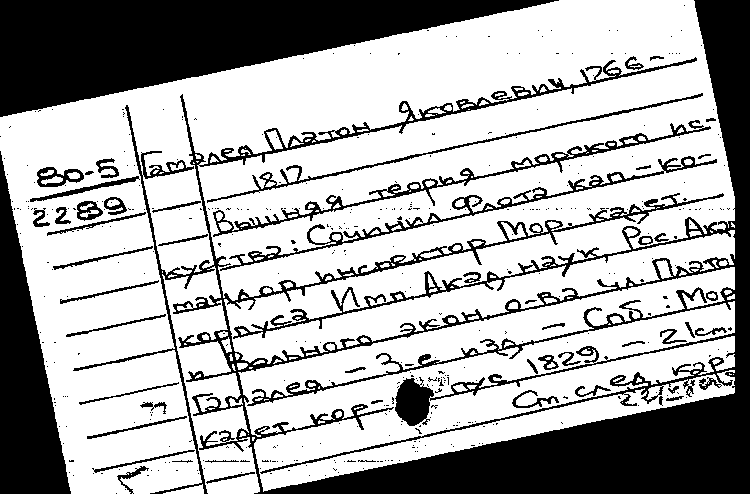 80-5
2289
Гамалея, Платон Яковлевич, 1766-
1817.
Вышняя теория морского ис-
кусства: Сочинил Флота кап-ко-
мандор, инспектор Мор. кадет.
корпуса, Имп Акад. наук, Рос. Акад
и Вольного экон. о-ва чл. Платон
Гамалея. - 3-е изд. - Спб.: Мор
кадет кор- пус, 1829. - 2 кт.
См. след. кар-